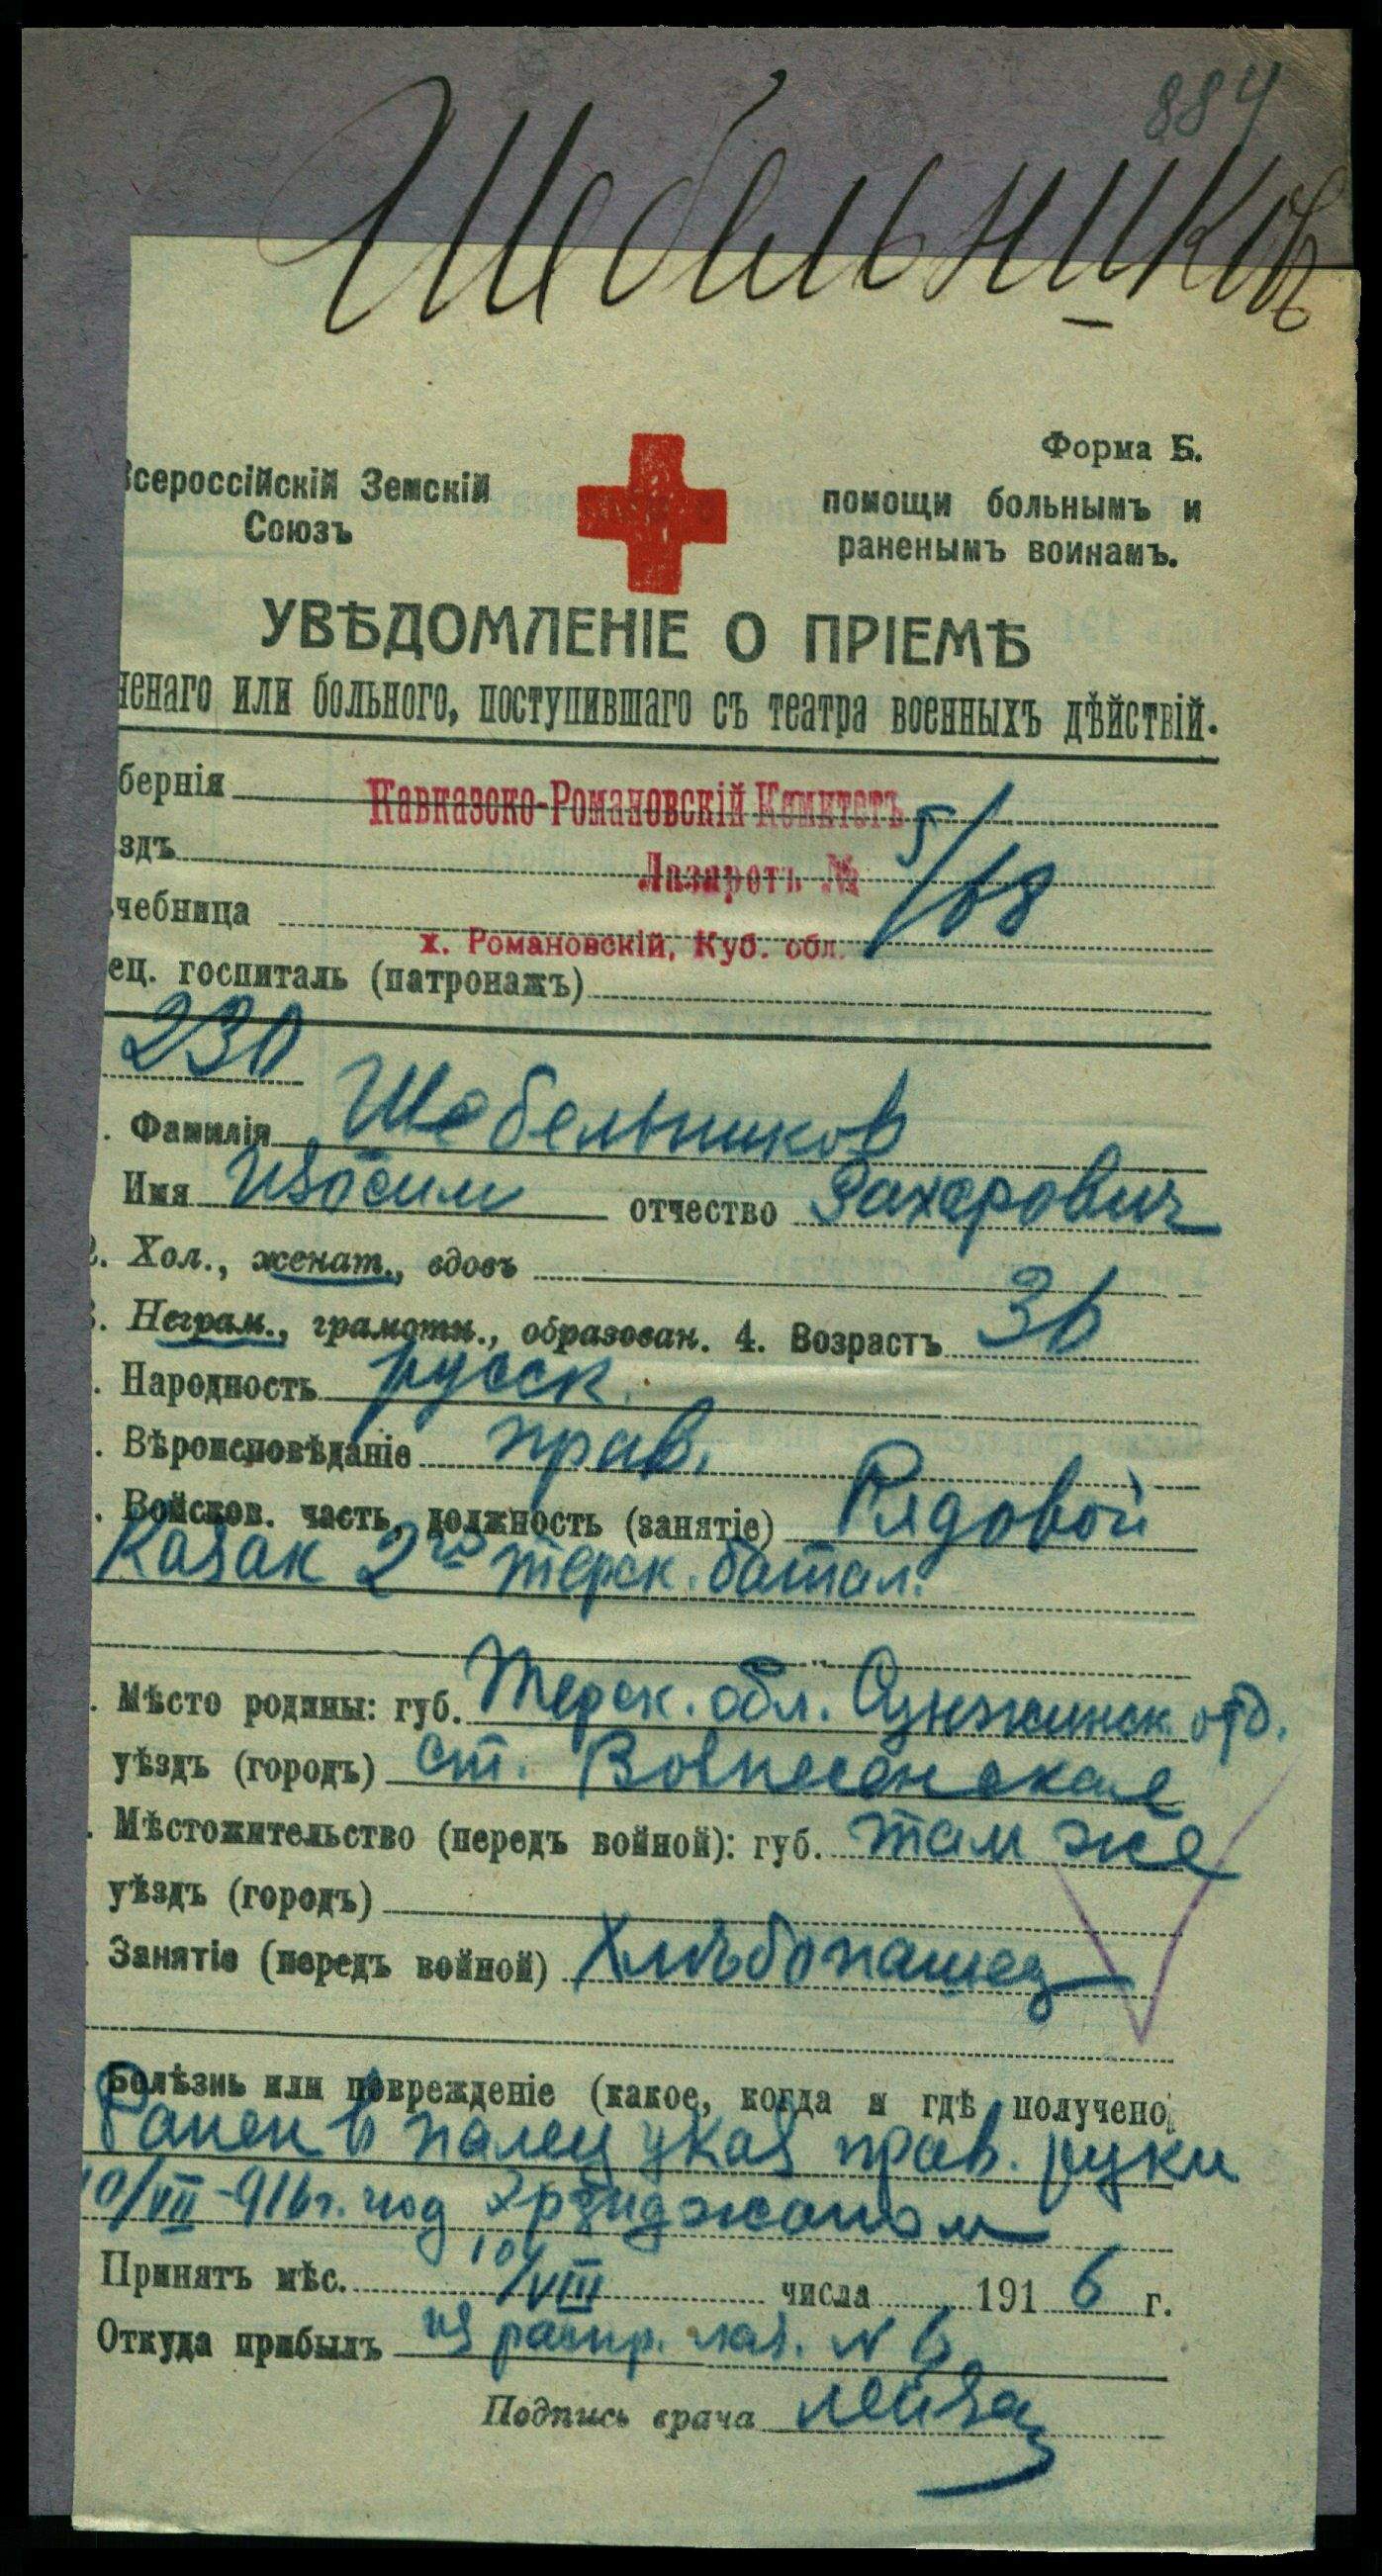 884
Шебельников
Форма Б.
Всероссійскій Земскій
Союзъ
помощи больнымъ и
раненымъ воинамъ.
УВѢДОМЛЕНІЕ О ПРІЕМѢ
ненаго или больного, поступившаго съ театра военныхъ дѣйствій.
бернія Кавказско-Романовскій Комитетъ
здъ Лазаретъ № 5/68
чебница х. Романовскій, Куб. обл.
ец. госпиталь (патронажъ)
230
. Фамилія Шебельников
Имя Изосим отчество Захарович
2. Хол., женат., вдовъ
3. Неграм., грамотн., образован. 4. Возрастъ 36
. Народность русск.
. Вѣроисповѣданіе прав.
. Войсков. часть, должность (занятіе) Рядовой
Казак 2го терск. батал.
. Мѣсто родины: губ. Терск. обл. Сунжинск. отд.
уѣздъ (городъ) ст. Вознесенская
. Мѣстожительство (передъ войной): губ. там же
уѣздъ (городъ)
Занятіе (передъ войной) Хлѣбопашец
Болѣзнь или поврежденіе (какое, когда и гдѣ получено
Ранен в палец указ прав. руки
10/VII-916г. под Эрзиджаном
Принятъ мѣс. 10/VIII числа 1916 г.
Откуда прибылъ из распр. лаз. N 6
Подпись врача